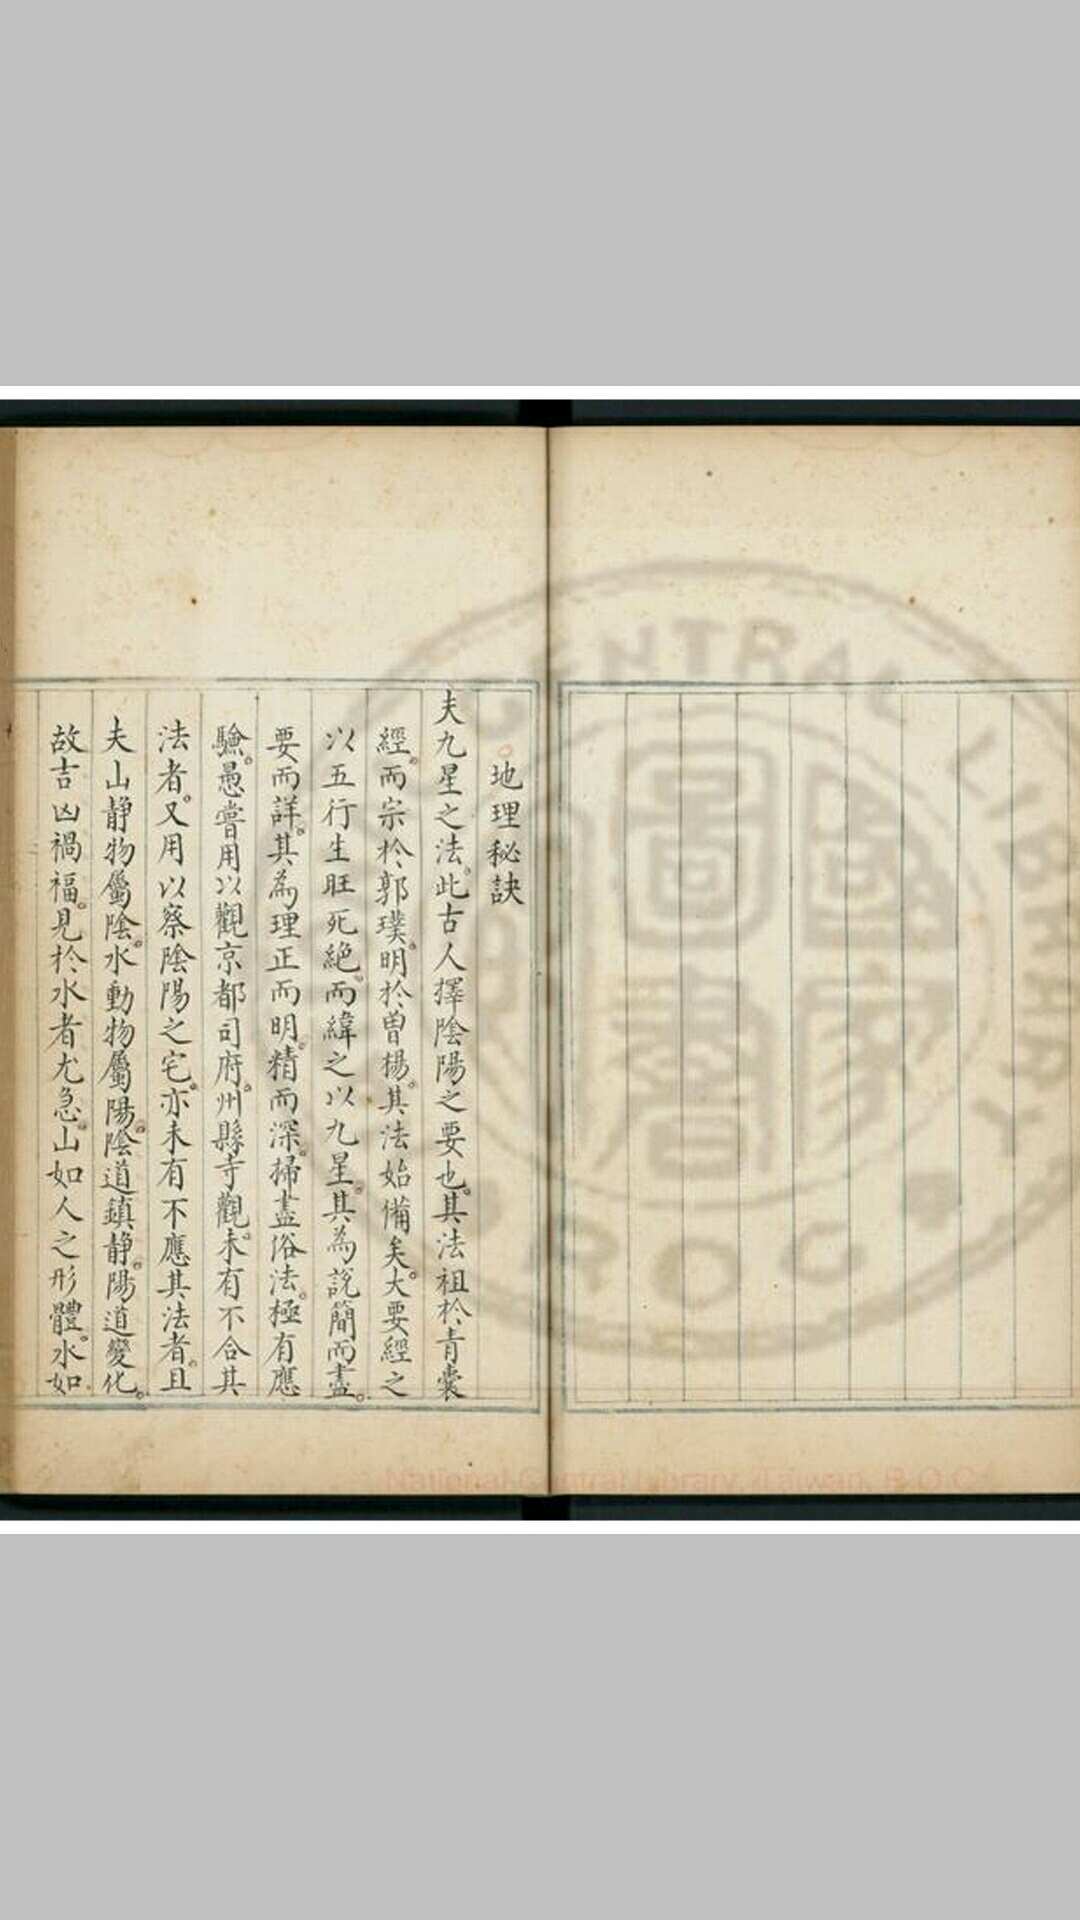 地理秘訣
夫九星之法。此古人擇陰陽之要也。其法祖於青囊
經。而宗於郭璞。明於曾楊。其法始備矣。大要經之
以五行生旺死絕。而緯之以九星。其為說簡而盡。
要而詳。其為理正而明。精而深。掃盡俗法。極有應
驗。愚嘗用以觀京都司府。州縣寺觀。未有不合其
法者。又用以察陰陽之宅。亦未有不應其法者。且
夫山靜物屬陰。水動物屬陽。陰道鎮靜。陽道變化。
故吉凶禍福。見於水者尤急。山如人之形體。水如
National Central Library, Taiwan, R.O.C